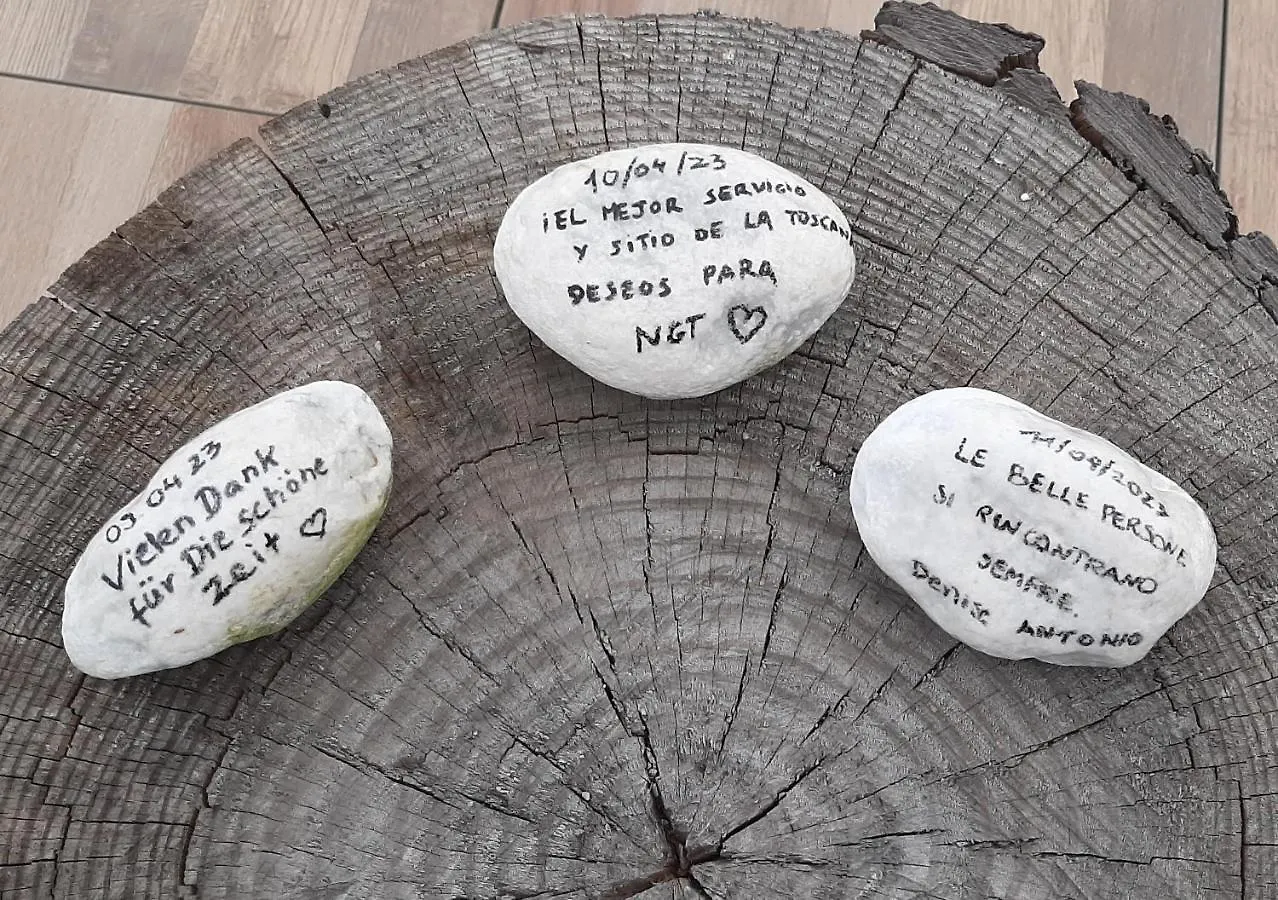 03 04 23
Vielen Dank
für Die schöne
zeit ♡
10/04/23
¡EL MEJOR SERVICIO
Y SITIO DE LA TOSCANA
DESEOS PARA
NGT ♡
11/04/2023
LE BELLE PERSONE
SI RINCONTRANO
SEMPRE.
Denise ANTONIO